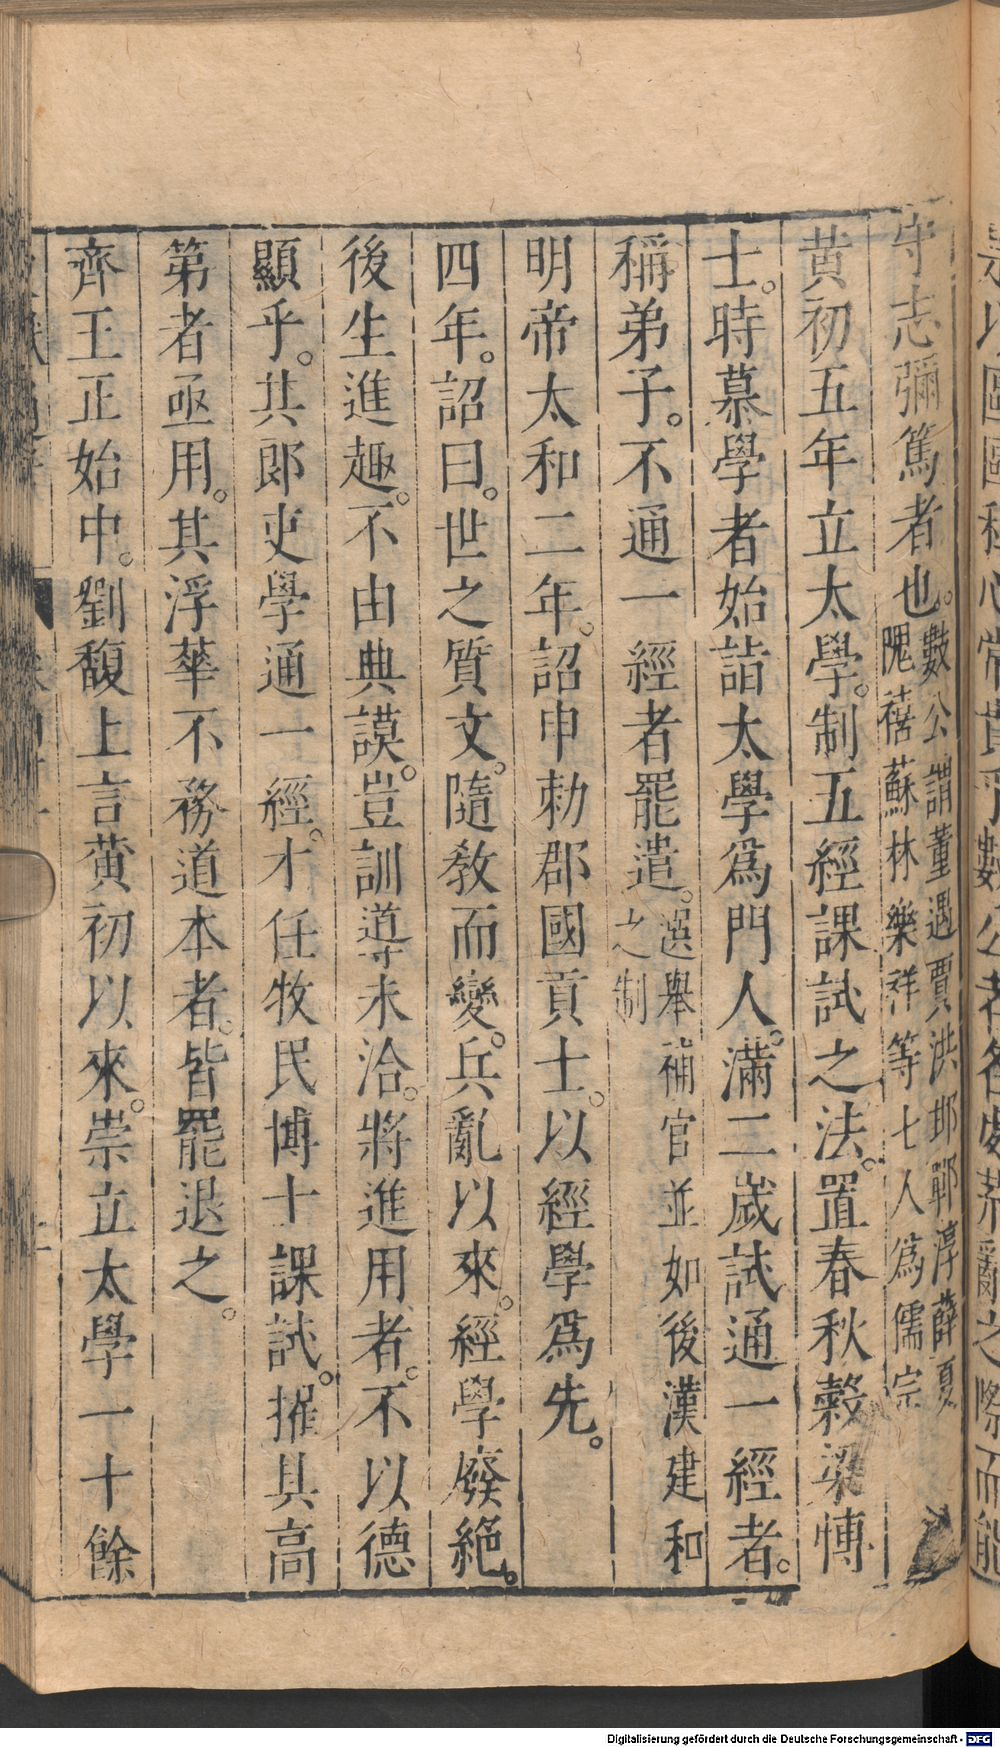 守志彌篤者也。數公謂董遇賈洪邯鄲淳薛夏
隗禧蘇林樂祥等七人爲儒宗
黃初五年立太學。制五經課試之法。置春秋穀梁博
士。時慕學者始詣太學爲門人。滿二歲試通一經者。
稱弟子。不通一經者罷遣。選舉補官並如後漢建和
之制
明帝太和二年。詔申勅郡國貢士。以經學爲先。
四年。詔曰。世之質文。隨教而變。兵亂以來。經學廢絕。
後生進趣。不由典謨。豈訓導未洽。將進用者。不以德
顯乎。其郎吏學通一經。才任牧民博士課試。擢其高
第者亟用。其浮華不務道本者。皆罷退之。
齊王正始中。劉馥上言黃初以來。崇立太學二十餘
Digitalisierung gefördert durch die Deutsche Forschungsgemeinschaft - DFG